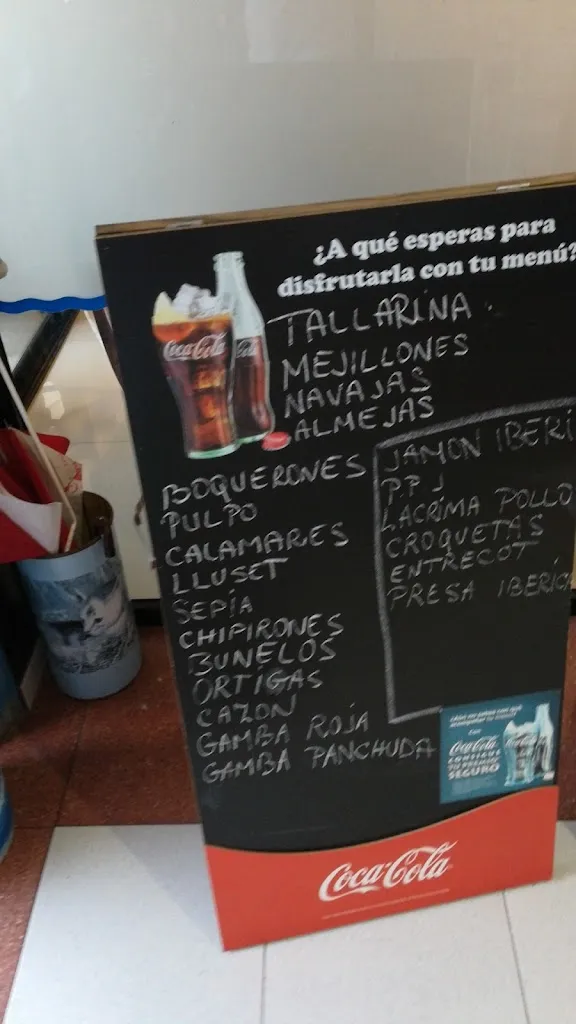 ¿A qué esperas para
disfrutarla con tu menú?
Coca-Cola
TALLARINA
MEJILLONES
NAVAJAS
ALMEJAS
BOQUERONES
PULPO
CALAMARES
LLUSET
SEPÍA
CHIPIRONES
BUNELOS
ORTIGAS
CAZON
GAMBA ROJA
GAMBA PANCHUDA
JAMON IBERI
P.P J
LACRÍMA POLLO
CROQUETAS
ENTRECOT
PRESA IBERIC
Coca-Cola
CONSIGUE
TU PREMIO
SEGURO
Coca-Cola